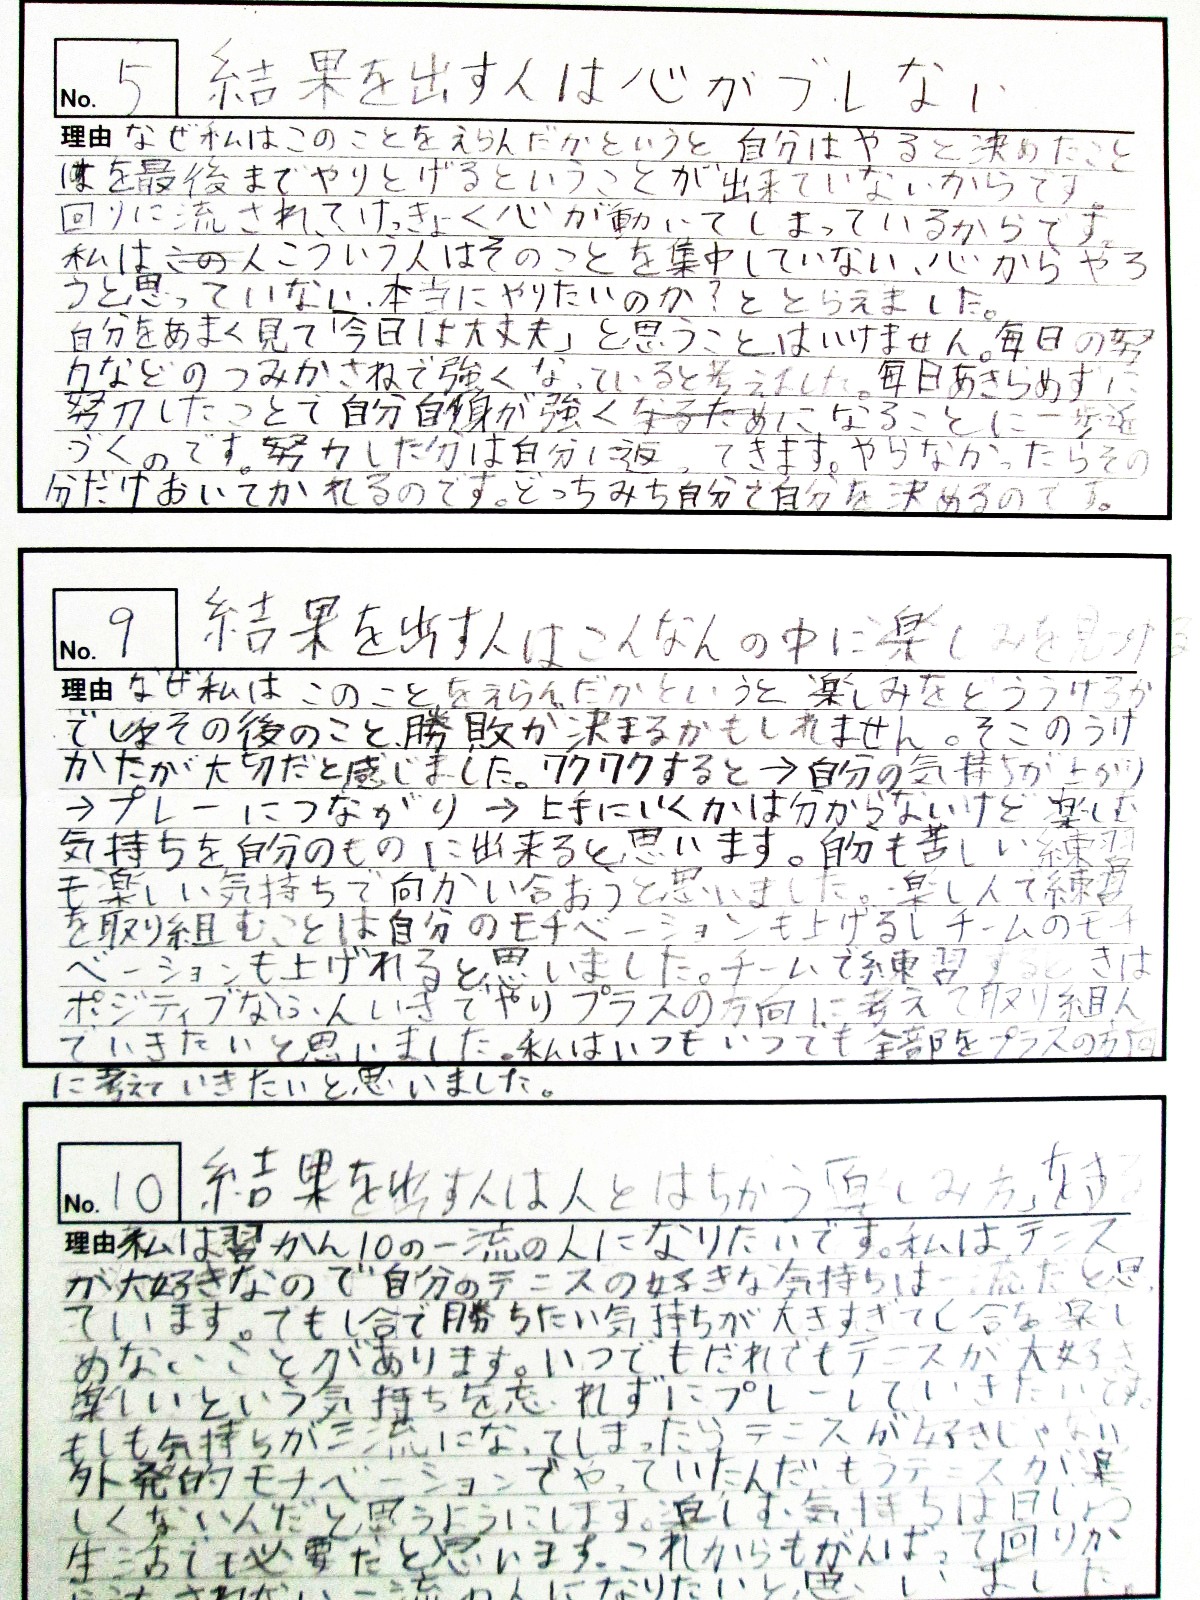 No. 5 結果を出す人は心がブレない
理由 なぜ私はこのことをえらんだかというと 自分はやると決めたこと
を最後までやりとげるということが出来ていないからです。
回りに流されていてけっきょく心が動いてしまっているからです。
私はこの人こういう人はそのことを集中していない、心からやろ
うと思っていない、本当にやりたいのか?ととらえました。
自分をあまく見て「今日は大丈夫」と思うことはいけません。毎日の努
力などのつみかさねで強くなっていると考えました。毎日あきらめずに
努力したことで自分自身が強くなるためになることに一歩近
づくのです。努力した分は自分に返ってきます。やらなかったらその
分だけおいてかれるのです。どっちみち自分で自分を決めるのです。
No. 9 結果を出す人はこんなんの中に楽しみを見つける
理由 なぜ私はこのことをえらんだかというと 楽しみをどううけるか
でその後のこと、勝敗が決まるかもしれません。そこのうけ
かたが大切だと感じました。ワクワクすると→自分の気持ちが上がり
→プレーにつながり→上手にいくかは分からないけど楽しむ
気持ちを自分のものに出来ると思います。自分も苦しい練習
も楽しい気持ちで向かい合おうと思いました。楽しんで練習
を取り組むことは自分のモチベーションも上げるしチームのモチ
ベーションも上げれると思いました。チームで練習するときは
ポジティブなふんいきでやりプラスの方向に考えて取り組ん
でいきたいと思いました。私はいつもいつでも全部をプラスの方向
に考えていきたいと思いました。
No. 10 結果を出す人は人とはちがう「楽しみ方」をする
理由 私は習かん10の一流の人になりたいです。私はテニス
が大好きなので自分のテニスの好きな気持ちは一流だと思
ています。でもし合で勝ちたい気持ちが大きすぎてし合を楽し
めないことがあります。いつでもだれでもテニスが大好き
楽しいという気持ちを忘れずにプレーしていきたいです。
もしも気持ちが三流になってしまったらテニスが好きじゃない、
外発的モチベーションでやっていたんだ もうテニスが楽
しくないんだと思うようにします。楽しむ気持ちは日じょう
生活でも必要だと思います。これからもがんばって回りか
一流の人になりたいと思いました。